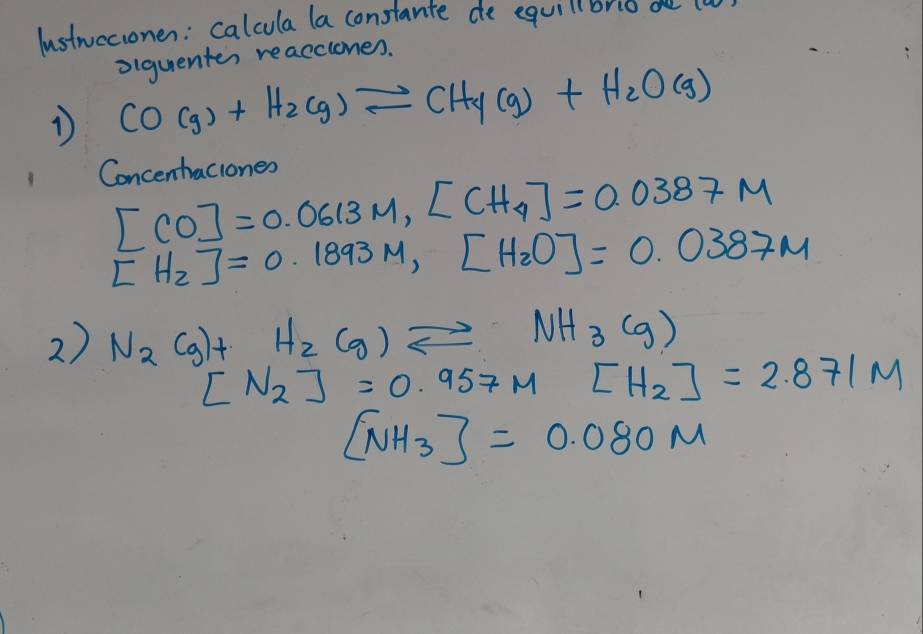 Instrucciones: calcula la constante de equilibrio de
siguentes reacciones.
1) CO (g) + H₂ (g) ⇌ CH₄ (g) + H₂O (g)
Concentraciones
[CO] = 0.0613 M, [CH₄] = 0.0387 M
[H₂] = 0.1893 M, [H₂O] = 0.0387 M
2) N₂ (g) + H₂ (g) ⇌ NH₃ (g)
[N₂] = 0.957 M [H₂] = 2.871 M
[NH₃] = 0.080 M